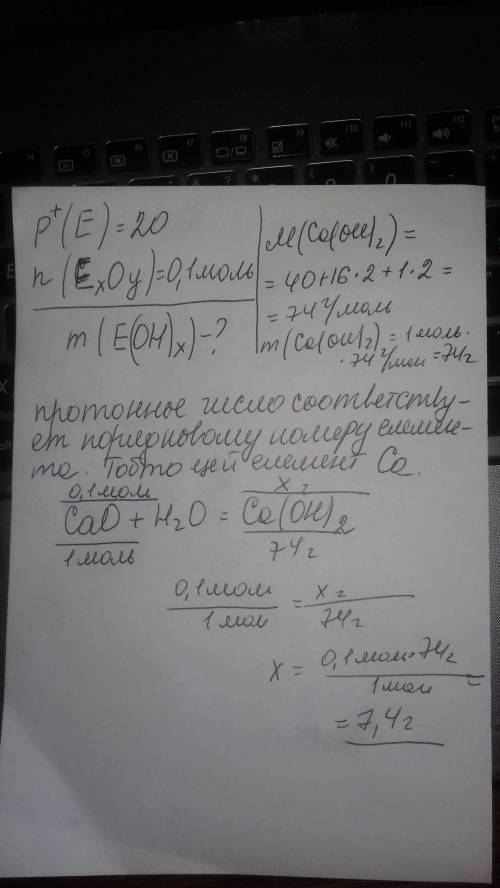 p⁺(E)=20
n(ExOy)=0,1моль
m(E(OH)x)-?
M(Ca(OH)₂)=
=40+16·2+1·2=
=74г/моль
m(Ca(OH)₂)=1моль·
·74г/мол=74г
протонное число соответству-
ет порядковому номеру елемен-
та. Тобто цей елемент Ca.
0,1мол x г
CaO+H₂O=Ca(OH)₂
1моль 74г
0,1мол = x г
1мол 74г
x = 0,1мол·74г =
1мол
=7,4г
F4 F5 F6 F7 F8 F9 F10 F11 F12